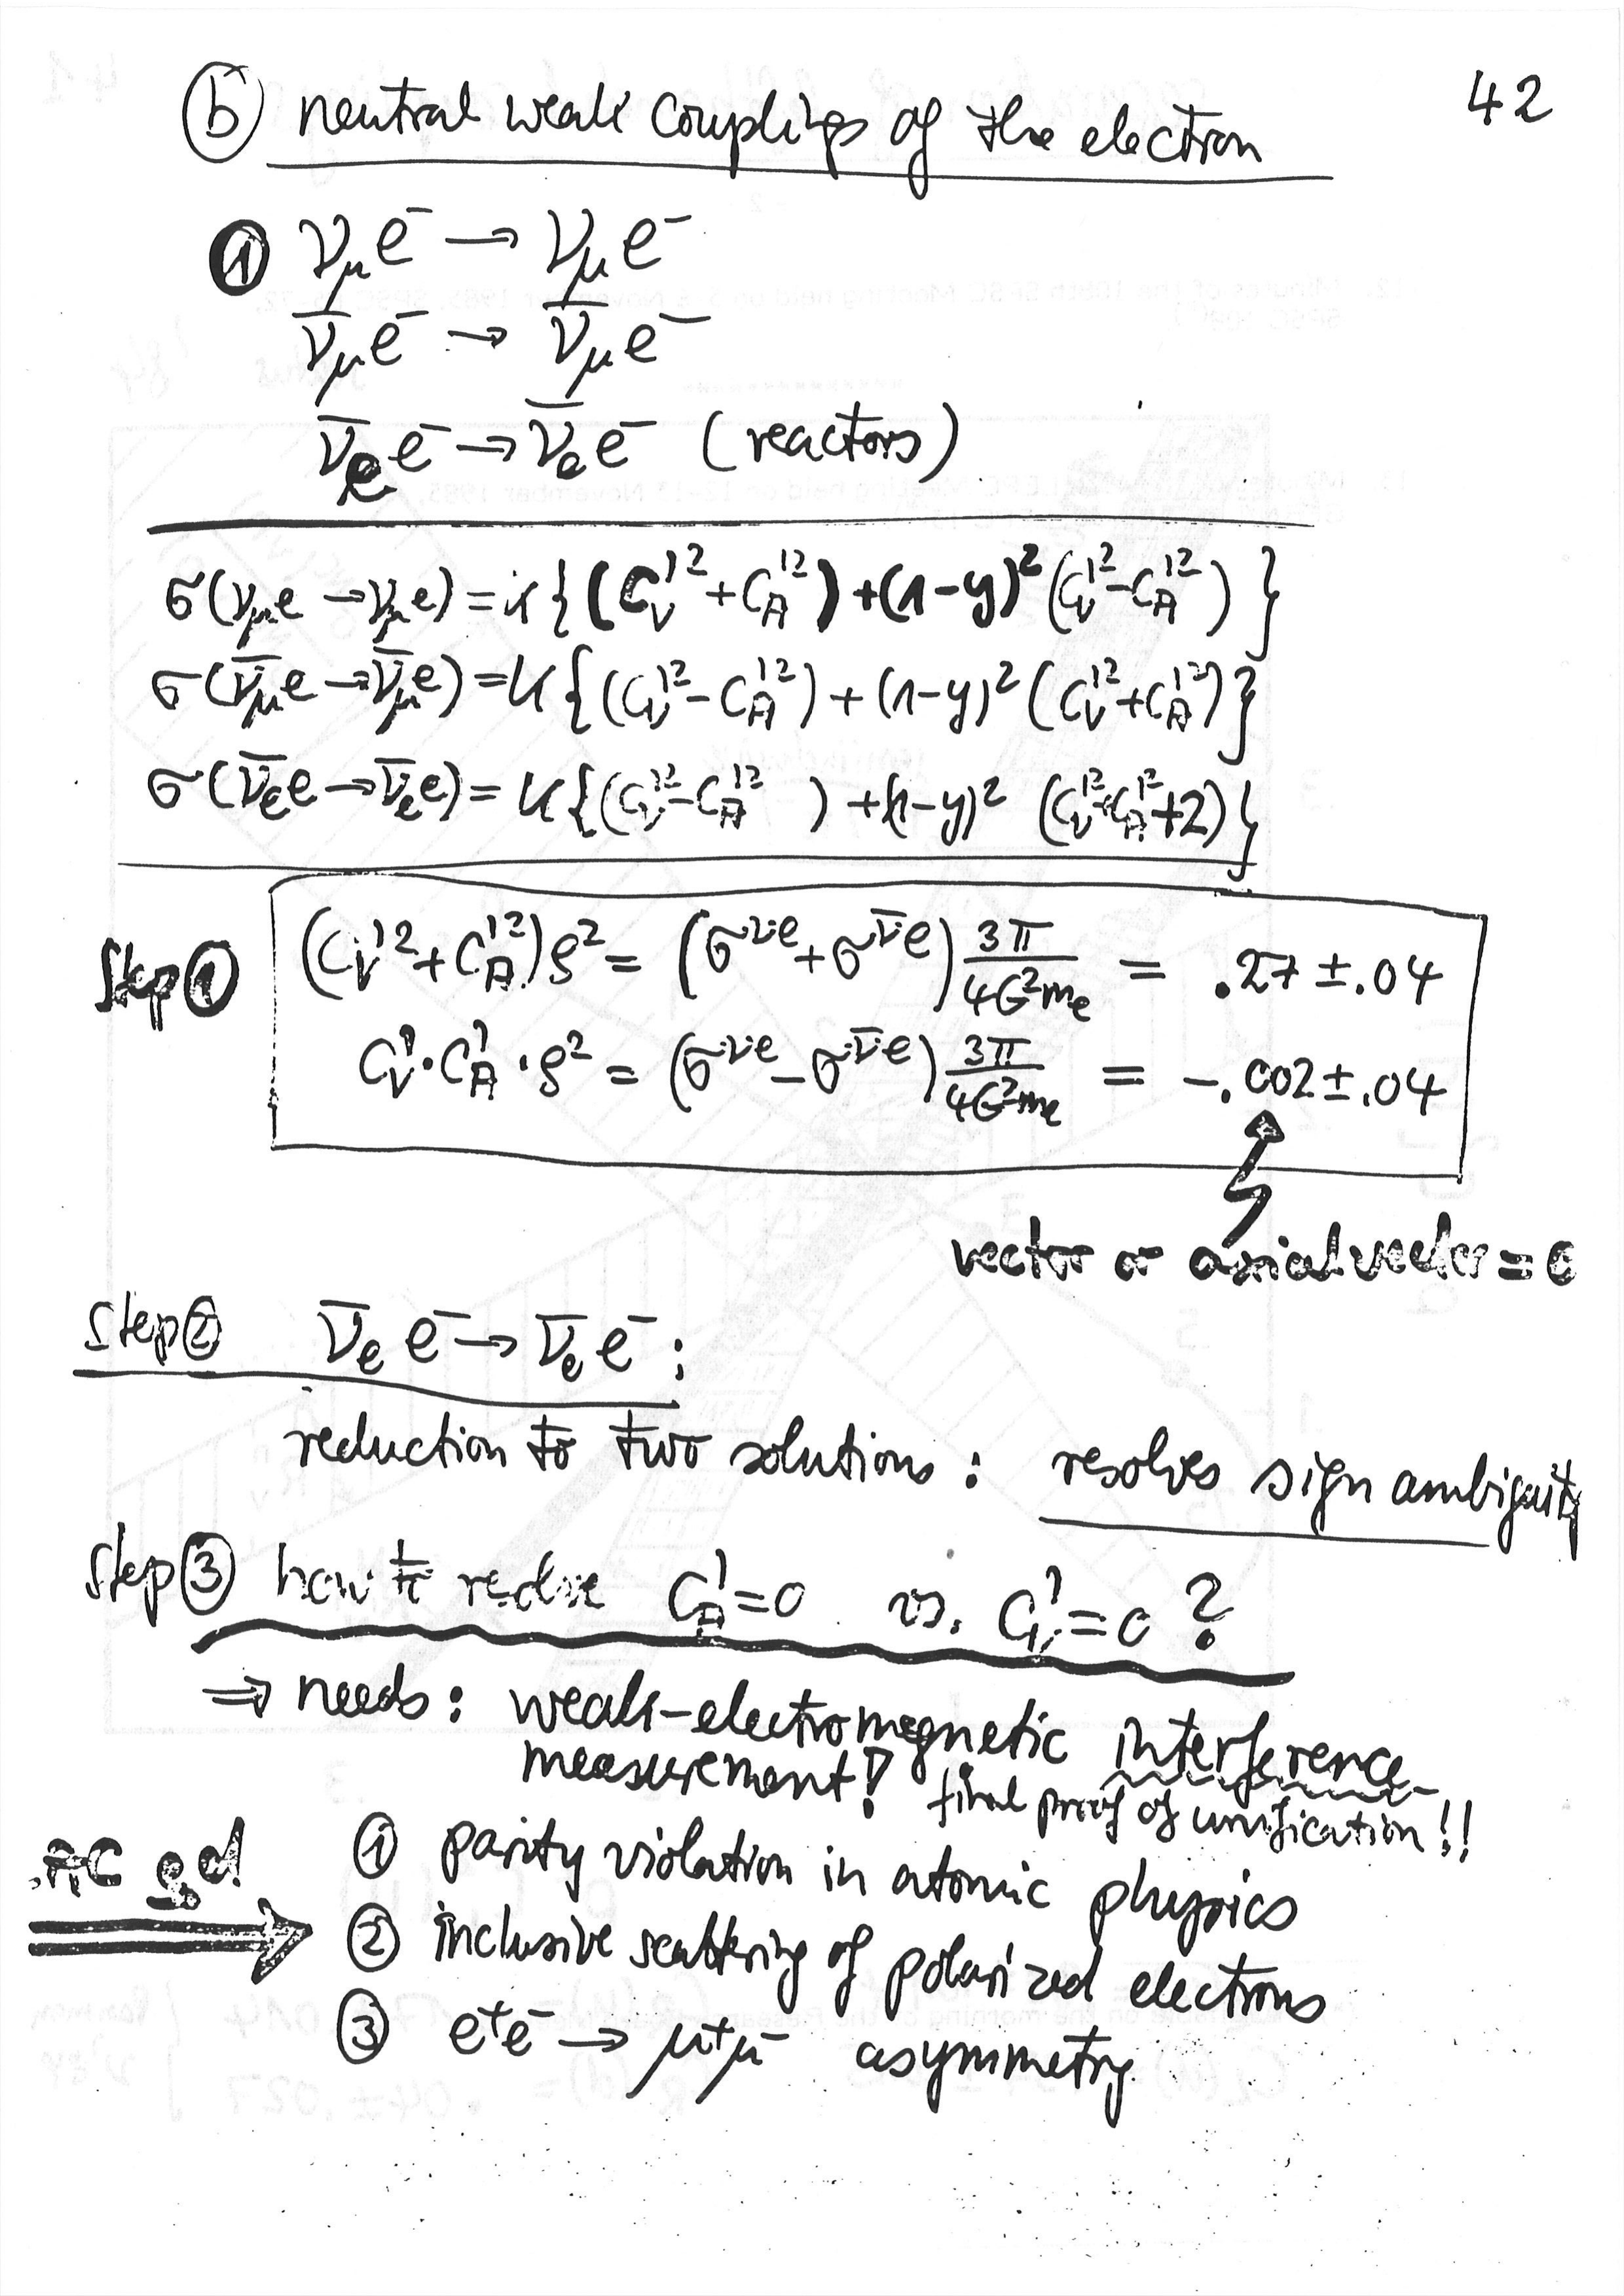 42
ⓑ neutral weak couplings of the electron
① νμ e⁻ → νμ e⁻
ν̄μ e⁻ → ν̄μ e⁻
ν̄e e⁻ → ν̄e e⁻ (reactors)
σ(νμe → νμe) = K{(C'V² + C'A²) + (1-y)² (C'V² - C'A²)}
σ(ν̄μe → ν̄μe) = K{(C'V² - C'A²) + (1-y)² (C'V² + C'A²)}
σ(ν̄ee → ν̄ee) = K{(C'V² - C'A²) + (1-y)² (C'V² + C'A² + 2)}
Step ① (C'V² + C'A²)ρ² = (σ^νe + σ^ν̄e) 3π/4G²me = .27 ± .04
C'V · C'A · ρ² = (σ^νe - σ^ν̄e) 3π/4G²me = -.002 ± .04
vector or axialvector = 0
Step ② ν̄e e⁻ → ν̄e e⁻ :
reduction to two solutions : resolves sign ambiguity
Step ③ how to resolve C'A = 0 vs. C'V = 0 ?
⇒ needs : weak-electromagnetic interference
measurement! final proof of unification!!
① parity violation in atomic physics
② inclusive scattering of polarized electrons
③ e⁺e⁻ → μ⁺μ⁻ asymmetry